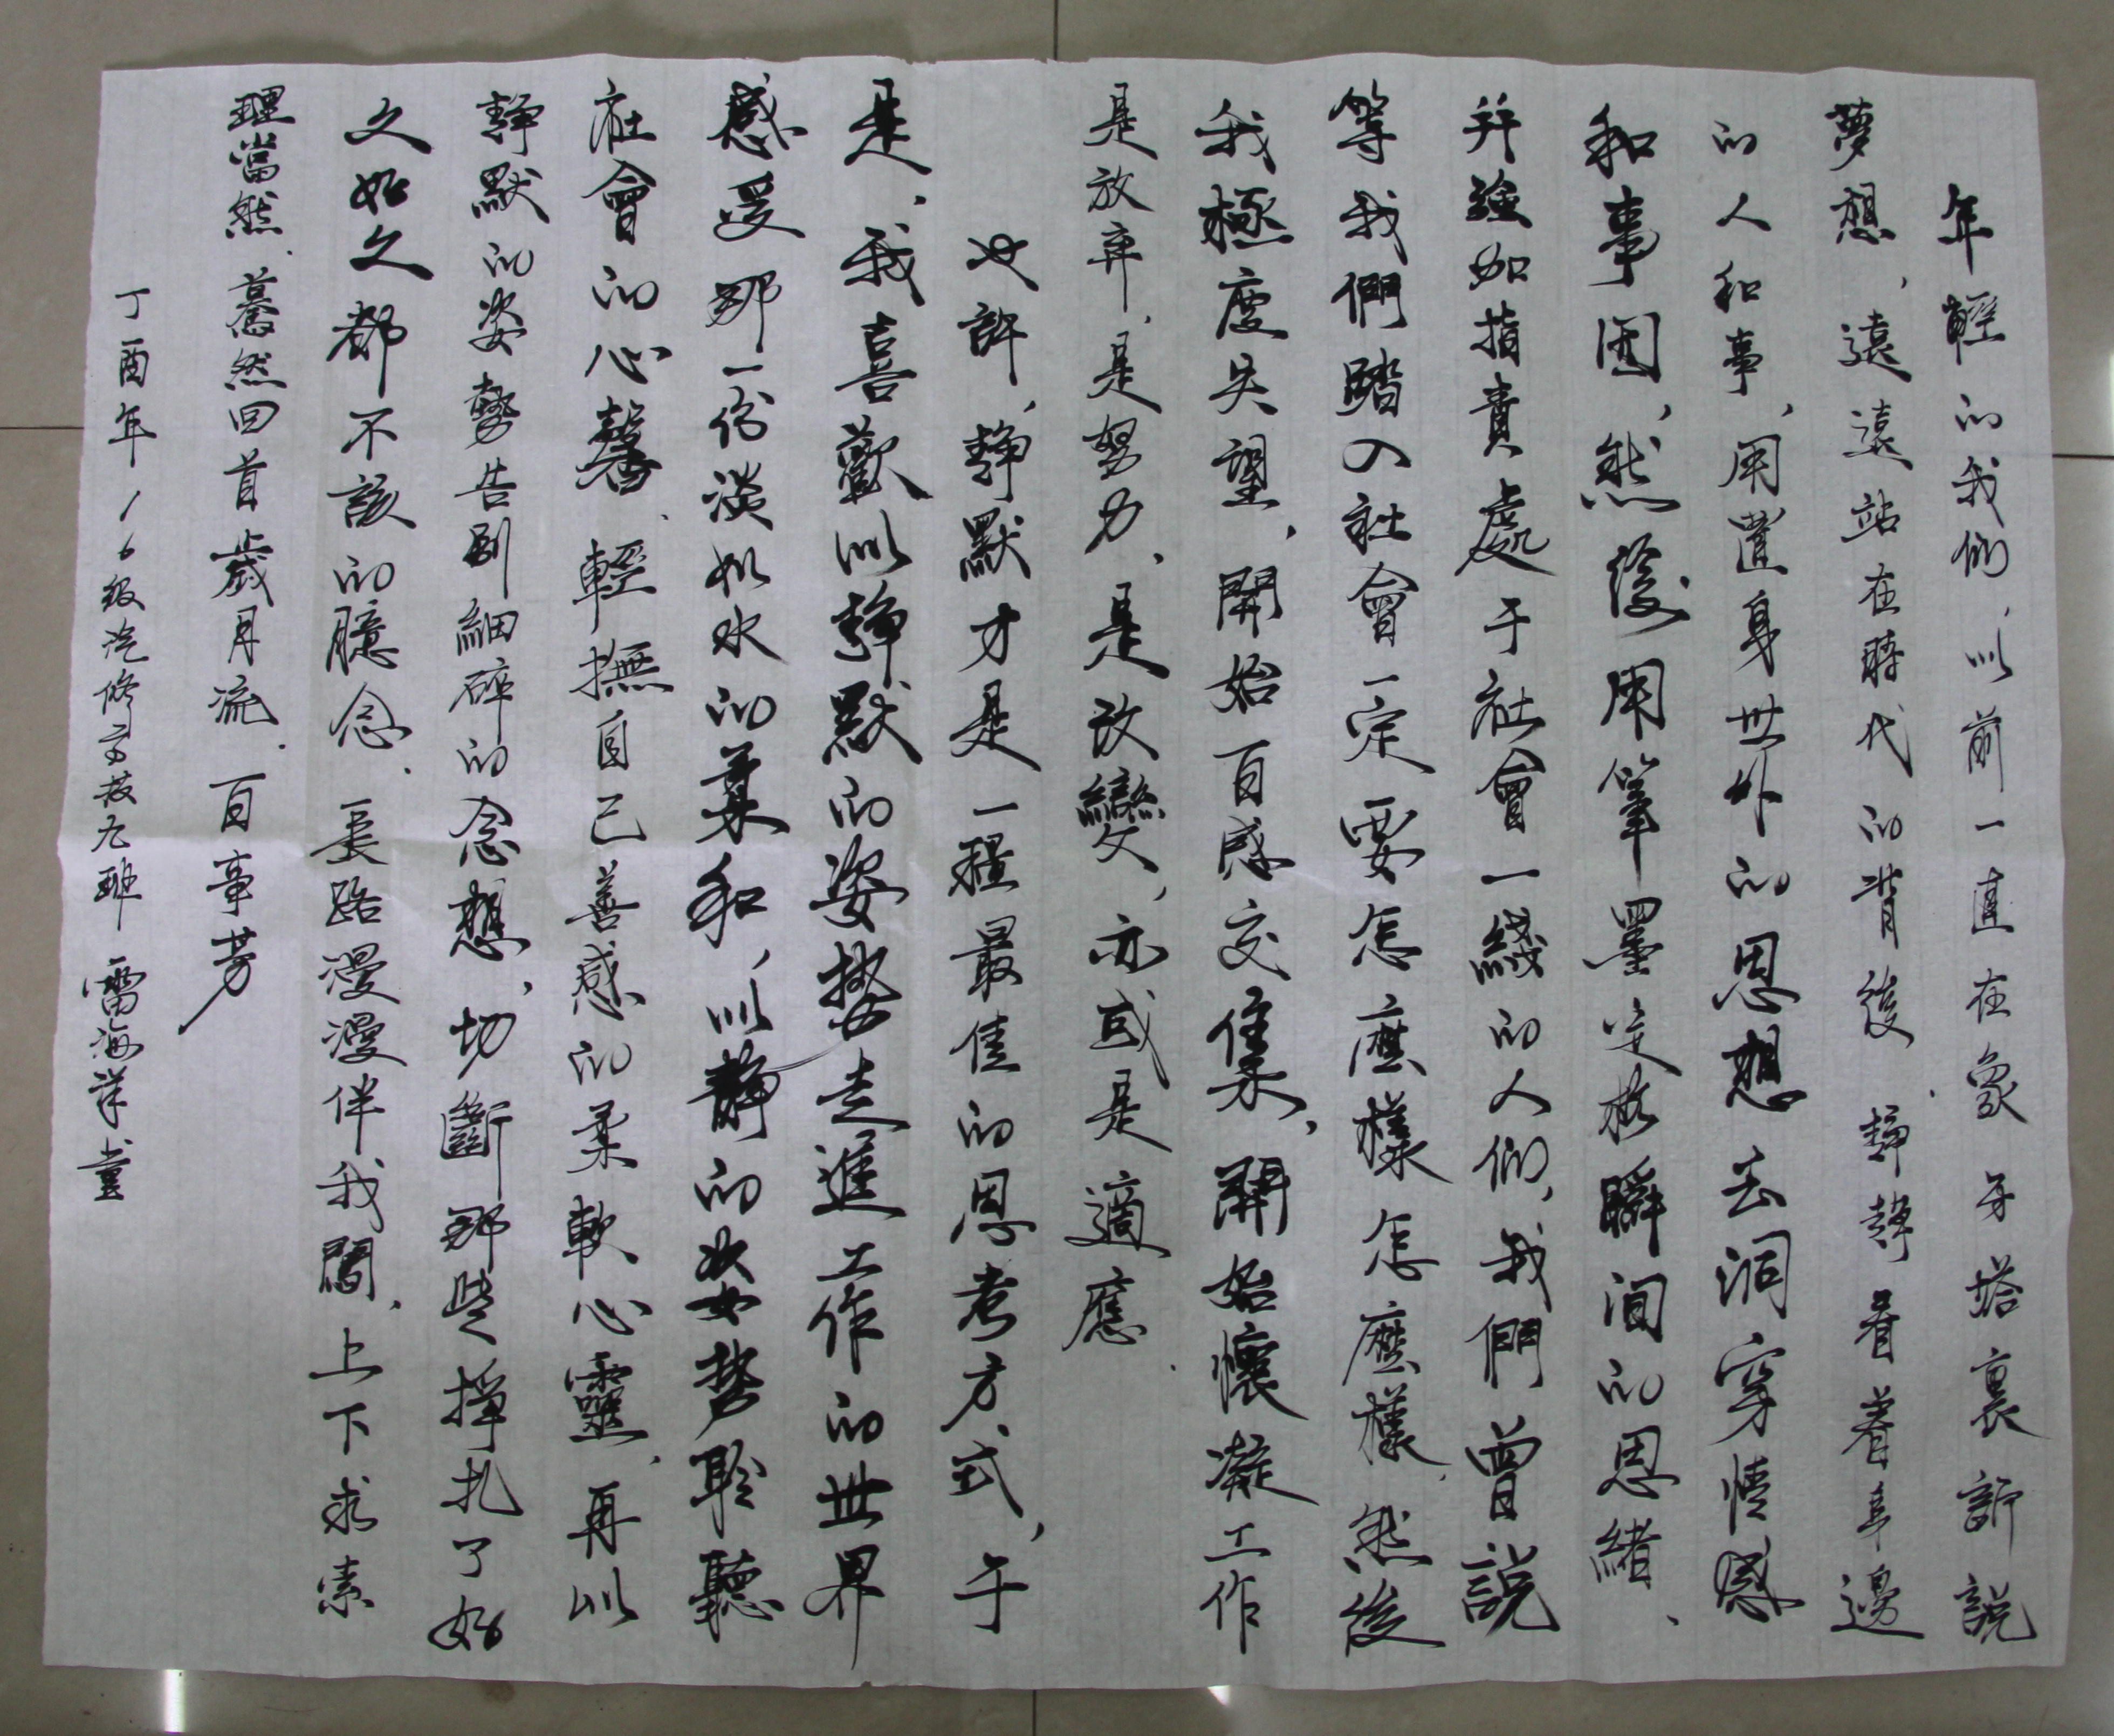 年輕的我們，以前一直在象牙塔裏訴說
夢想，遠遠站在時代的背後，靜靜看着身邊
的人和事，用置身世外的思想去洞穿情感
和事因，然後用筆墨定格瞬間的思緒、
并強加指責處于社會一綫的人們，我們曾說
等我們踏入社會一定要怎麽樣怎麽樣，然後
我極度失望，開始百感交集，開始懷凝工作
是放弃，是努力，是改變，亦或是適應．
也許，靜默才是一種最佳的思考方式，于
是，我喜歡以靜默的姿勢走進工作的世界
感受那一份淡如水的柔和，以靜的姿勢聆聽
社會的心馨，輕撫自己善感的柔軟心靈，再以
靜默的姿勢告别細碎的念想，切斷那些掙扎了好
久好久都不該的臆念．長路漫漫伴我闖，上下求索
理當然．驀然回首歲月流．百事芳
丁酉年16级汽修高技九班 雷海洋書